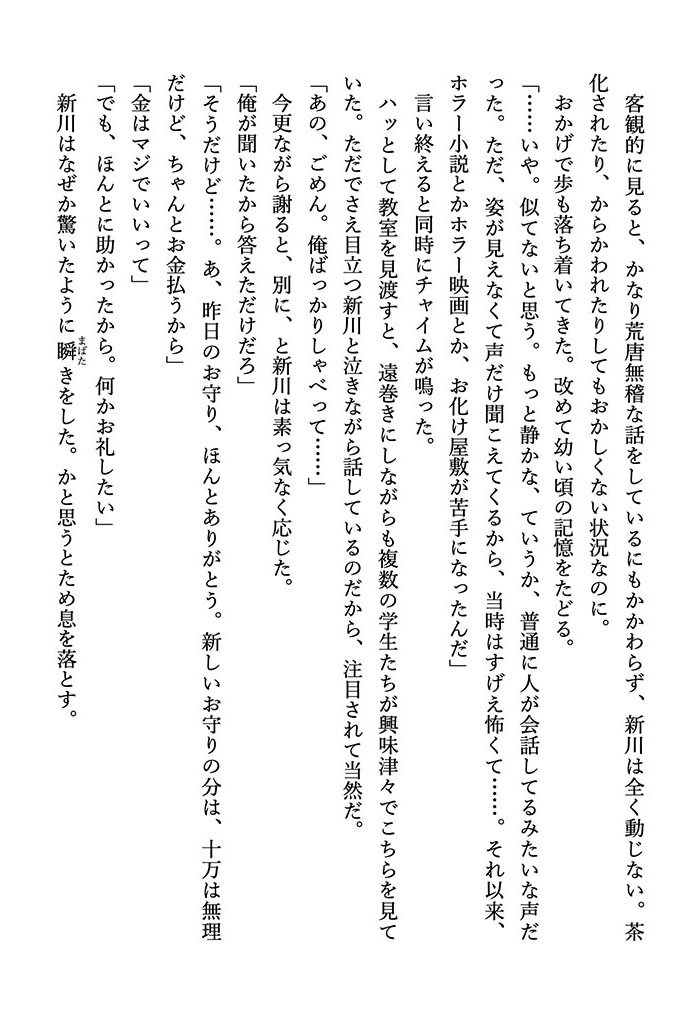 客観的に見ると、かなり荒唐無稽な話をしているにもかかわらず、新川は全く動じない。茶
化されたり、からかわれたりしてもおかしくない状況なのに。
おかげで歩も落ち着いてきた。改めて幼い頃の記憶をたどる。
「……いや。似てないと思う。もっと静かな、ていうか、普通に人が会話してるみたいな声だ
った。ただ、姿が見えなくて声だけ聞こえてくるから、当時はすげえ怖くて……。それ以来、
ホラー小説とかホラー映画とか、お化け屋敷が苦手になったんだ」
言い終えると同時にチャイムが鳴った。
ハッとして教室を見渡すと、遠巻きにしながらも複数の学生たちが興味津々でこちらを見て
いた。ただでさえ目立つ新川と泣きながら話しているのだから、注目されて当然だ。
「あの、ごめん。俺ばっかりしゃべって……」
今更ながら謝ると、別に、と新川は素っ気なく応じた。
「俺が聞いたから答えただけだろ」
「そうだけど……。あ、昨日のお守り、ほんとありがとう。新しいお守りの分は、十万は無理
だけど、ちゃんとお金払うから」
「金はマジでいいって」
「でも、ほんとに助かったから。何かお礼したい」
新川はなぜか驚いたように瞬まばたきをした。かと思うとため息を落とす。